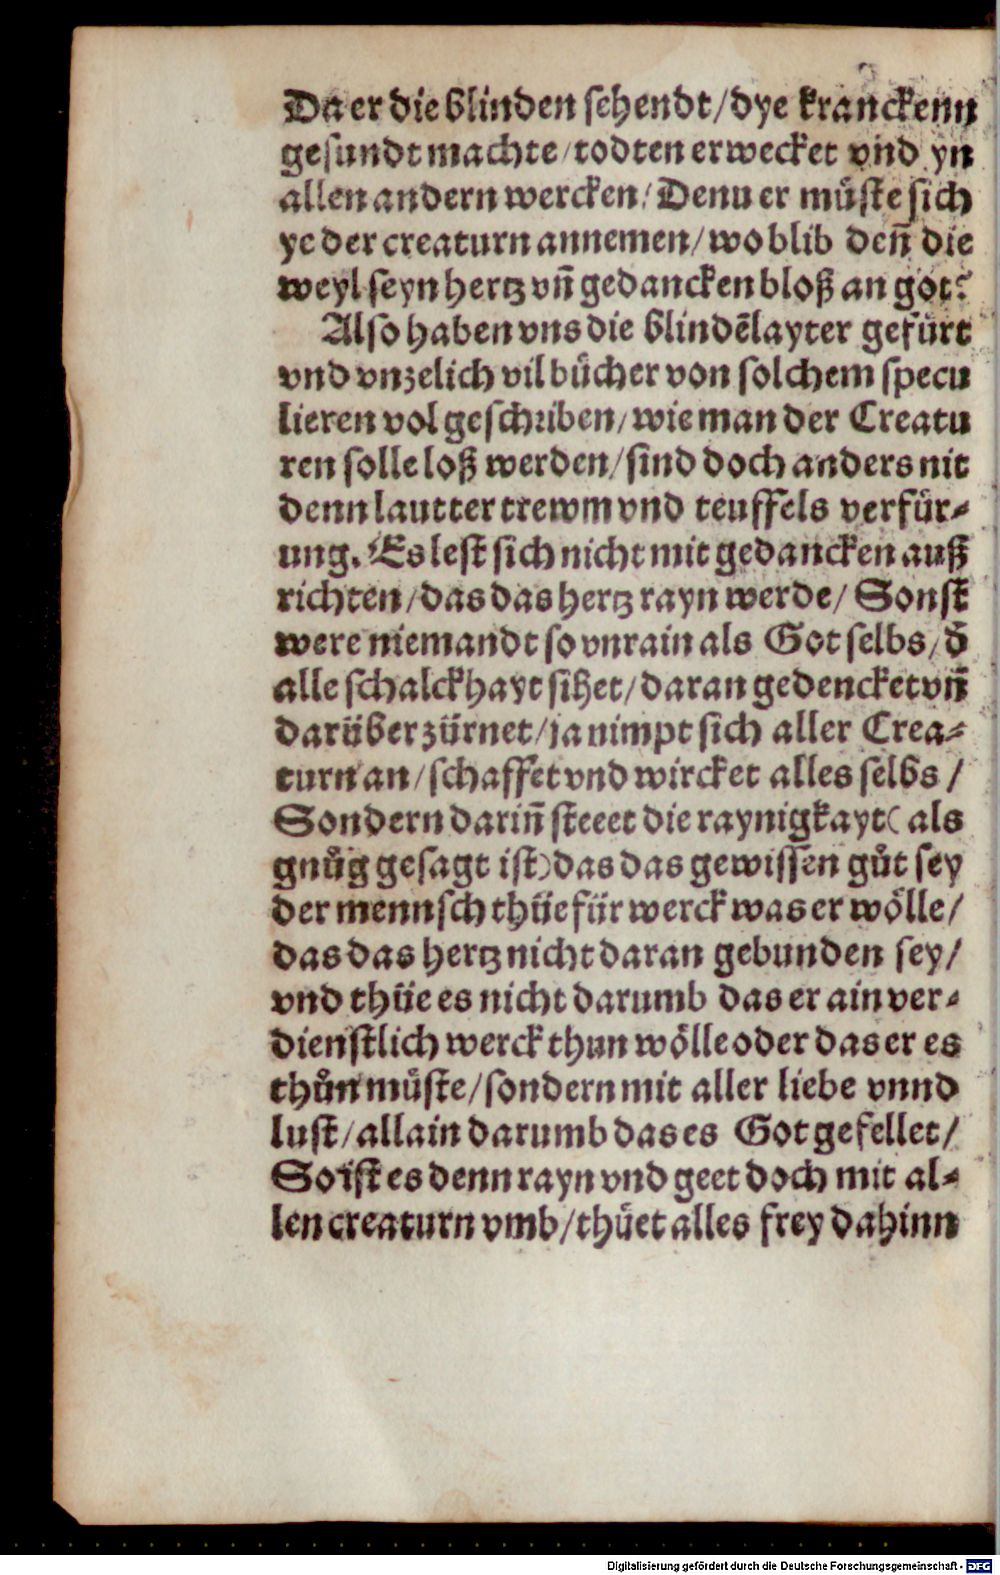 Da er die blinden sehendt/ dye kranckenn
gesundt machte/ todten erwecket vnd yn
allen andern wercken/ Denn er můste sich
ye der creaturn annemen/ wo blib den̄ die
weyl seyn hertz vn̄ gedancken bloß an got?
Also haben vns die blindē layter gefůrt
vnd vnzelich vil bůcher von solchem specu
lieren vol geschriben/ wie man der Creatu
ren solle loß werden/ sind doch anders nit
denn lautter trewm vnd teuffels verfür⸗
ung. Es lest sich nicht mit gedancken auß
richten/ das das hertz rayn werde/ Sonst
were niemandt so vnrain als Got selbs/ d̄
alle schalckhayt sihet/ daran gedencket vn̄
darüber zürnet/ ja nimpt sich aller Crea⸗
turn an/ schaffet vnd wircket alles selbs/
Sondern darin̄ steeet die raynigkayt( als
gnůg gesagt ist) das das gewissen gůt sey
der mennsch thüe für werck was er wölle/
das das hertz nicht daran gebunden sey/
vnd thüe es nicht darumb das er ain ver⸗
dienstlich werck thun wölle oder das er es
thůn můste/ sondern mit aller liebe vnnd
lust/ allain darumb das es Got gefellet/
So ist es denn rayn vnd geet doch mit al⸗
len creaturn vmb/ thüet alles frey dahinn
Digitalisierung gefördert durch die Deutsche Forschungsgemeinschaft - DFG